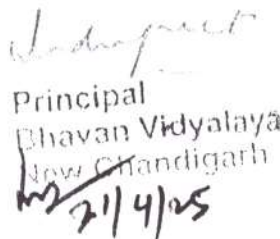 Principal
Bhavan Vidyalaya
New Chandigarh
21/4/25